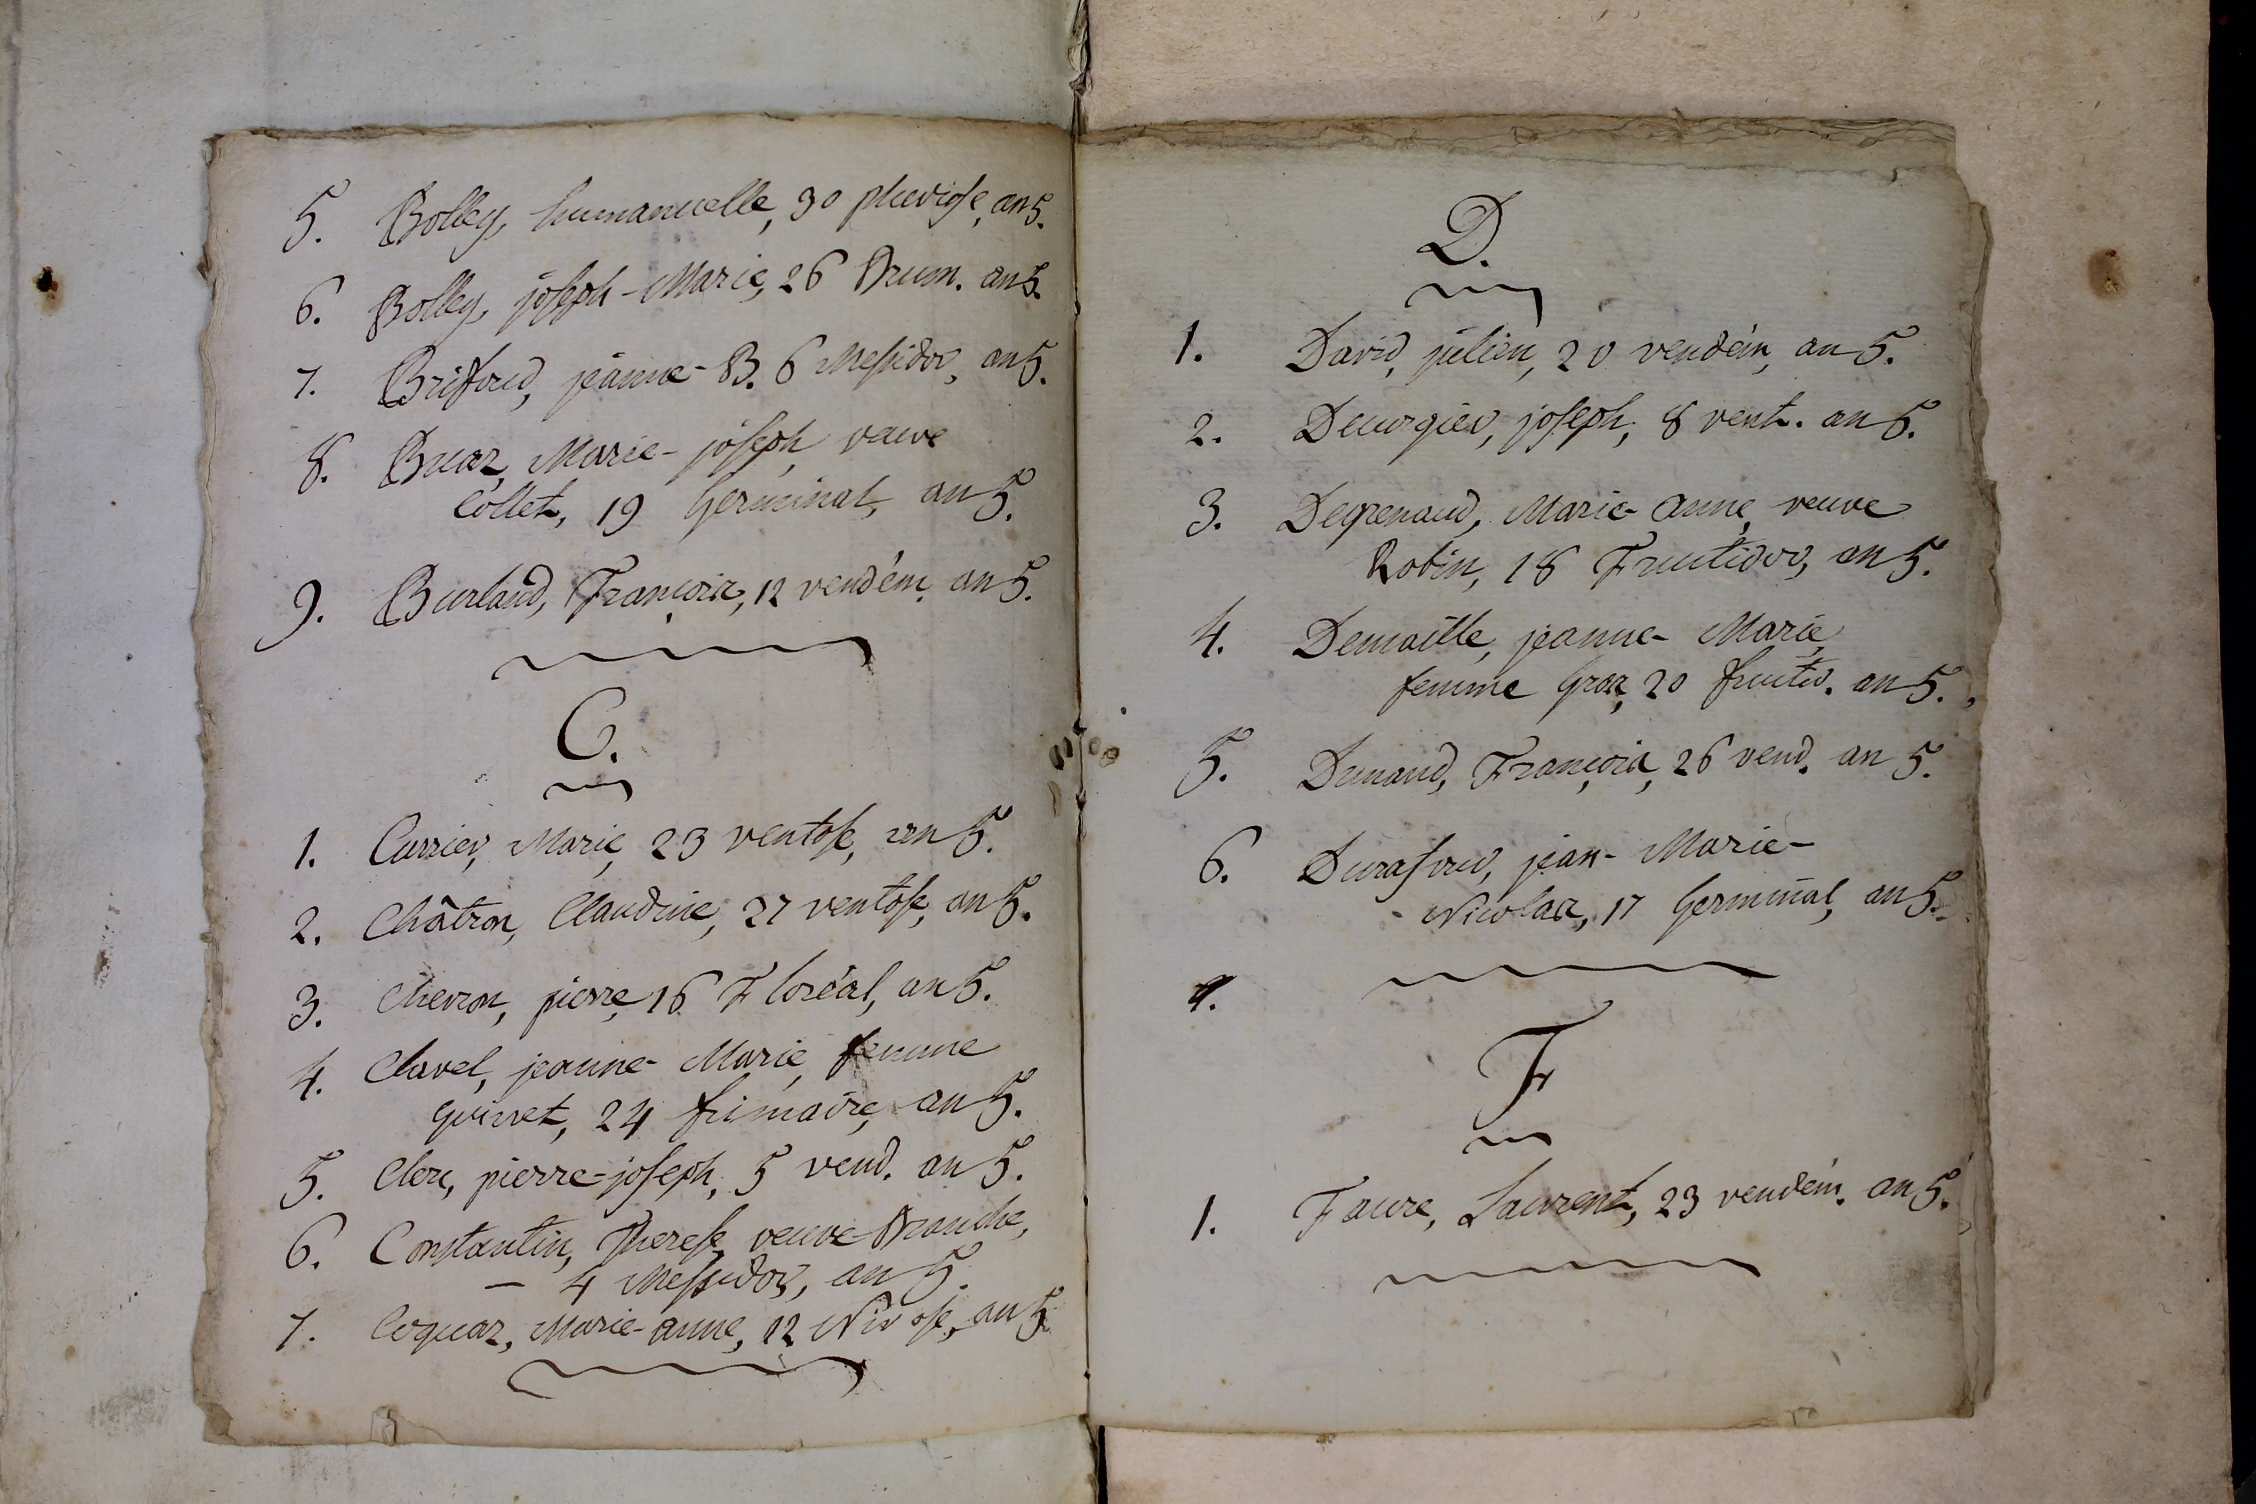 5. Bolley, humanuelle, 30 pluviose, an 5.
6. Bolley, joseph-Marie, 26 Brum. an 5.
7. Brifoud, jeanne-B. 6 Messidor, an 5.
8. Buaz, Marie-joseph, veuve
Collet, 19 Germinal, an 5.
9. Burlaud, François, 12 vendém. an 5.
C.
1. Carrier, Marie, 23 ventose, an 5.
2. Châtron, Claudine, 27 ventose, an 5.
3. Chevron, pierre, 16 Floréal, an 5.
4. Clavel, jeanne-Marie, femme
24 frimaire, an 5.
5. Clerc, pierre-joseph, 5 vend. an 5.
6. Constantin, Therese, veuve Branche,
— 4 Messidor, an 5.
7. Coquaz, Marie-anne, 12 Nivose, an 5.
D.
1. David, julien, 20 vendém, an 5.
2. joseph, 8 vent. an 5.
3. Degrenaud, Marie-anne, veuve
Robin, 18 Fructidor, an 5.
4. Demaille, jeanne-Marie,
femme Graz, 20 fructid. an 5.
5. Dunand, François, 26 vend. an 5.
6. Durafour, jean-Marie-
Nicolas, 17 Germinal, an 5.
F
1. Faure, Laurent, 23 vendém. an 5.